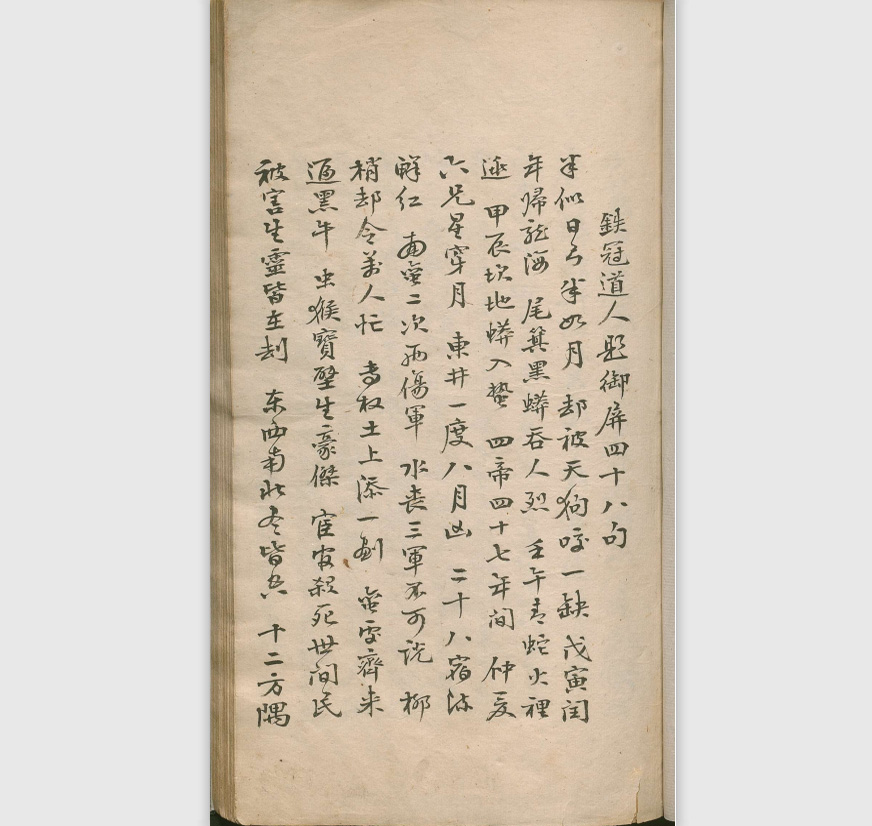 鉄冠道人題御屏四十八句
半似日弓半如月 却被天狗咬一缺 戊寅闰
年帰龍海 尾箕黑蟒吞人烈 壬午青蛇火裡
逃 甲辰坎地蟒入蟄 四帝四十七年间 仲夏
六兄星穿月 東井一度八月凶 二十八宿
鮮红 南蛮二次両傷軍 水喪三軍不可说 柳
梢却令萬人忙 专权土上添一劃 蛮雯齊来
逼黑牛 虫猴寶壁生豪傑 宦官殺死世间民
被害生靈皆在刦 东西南北冬皆 十二方隅